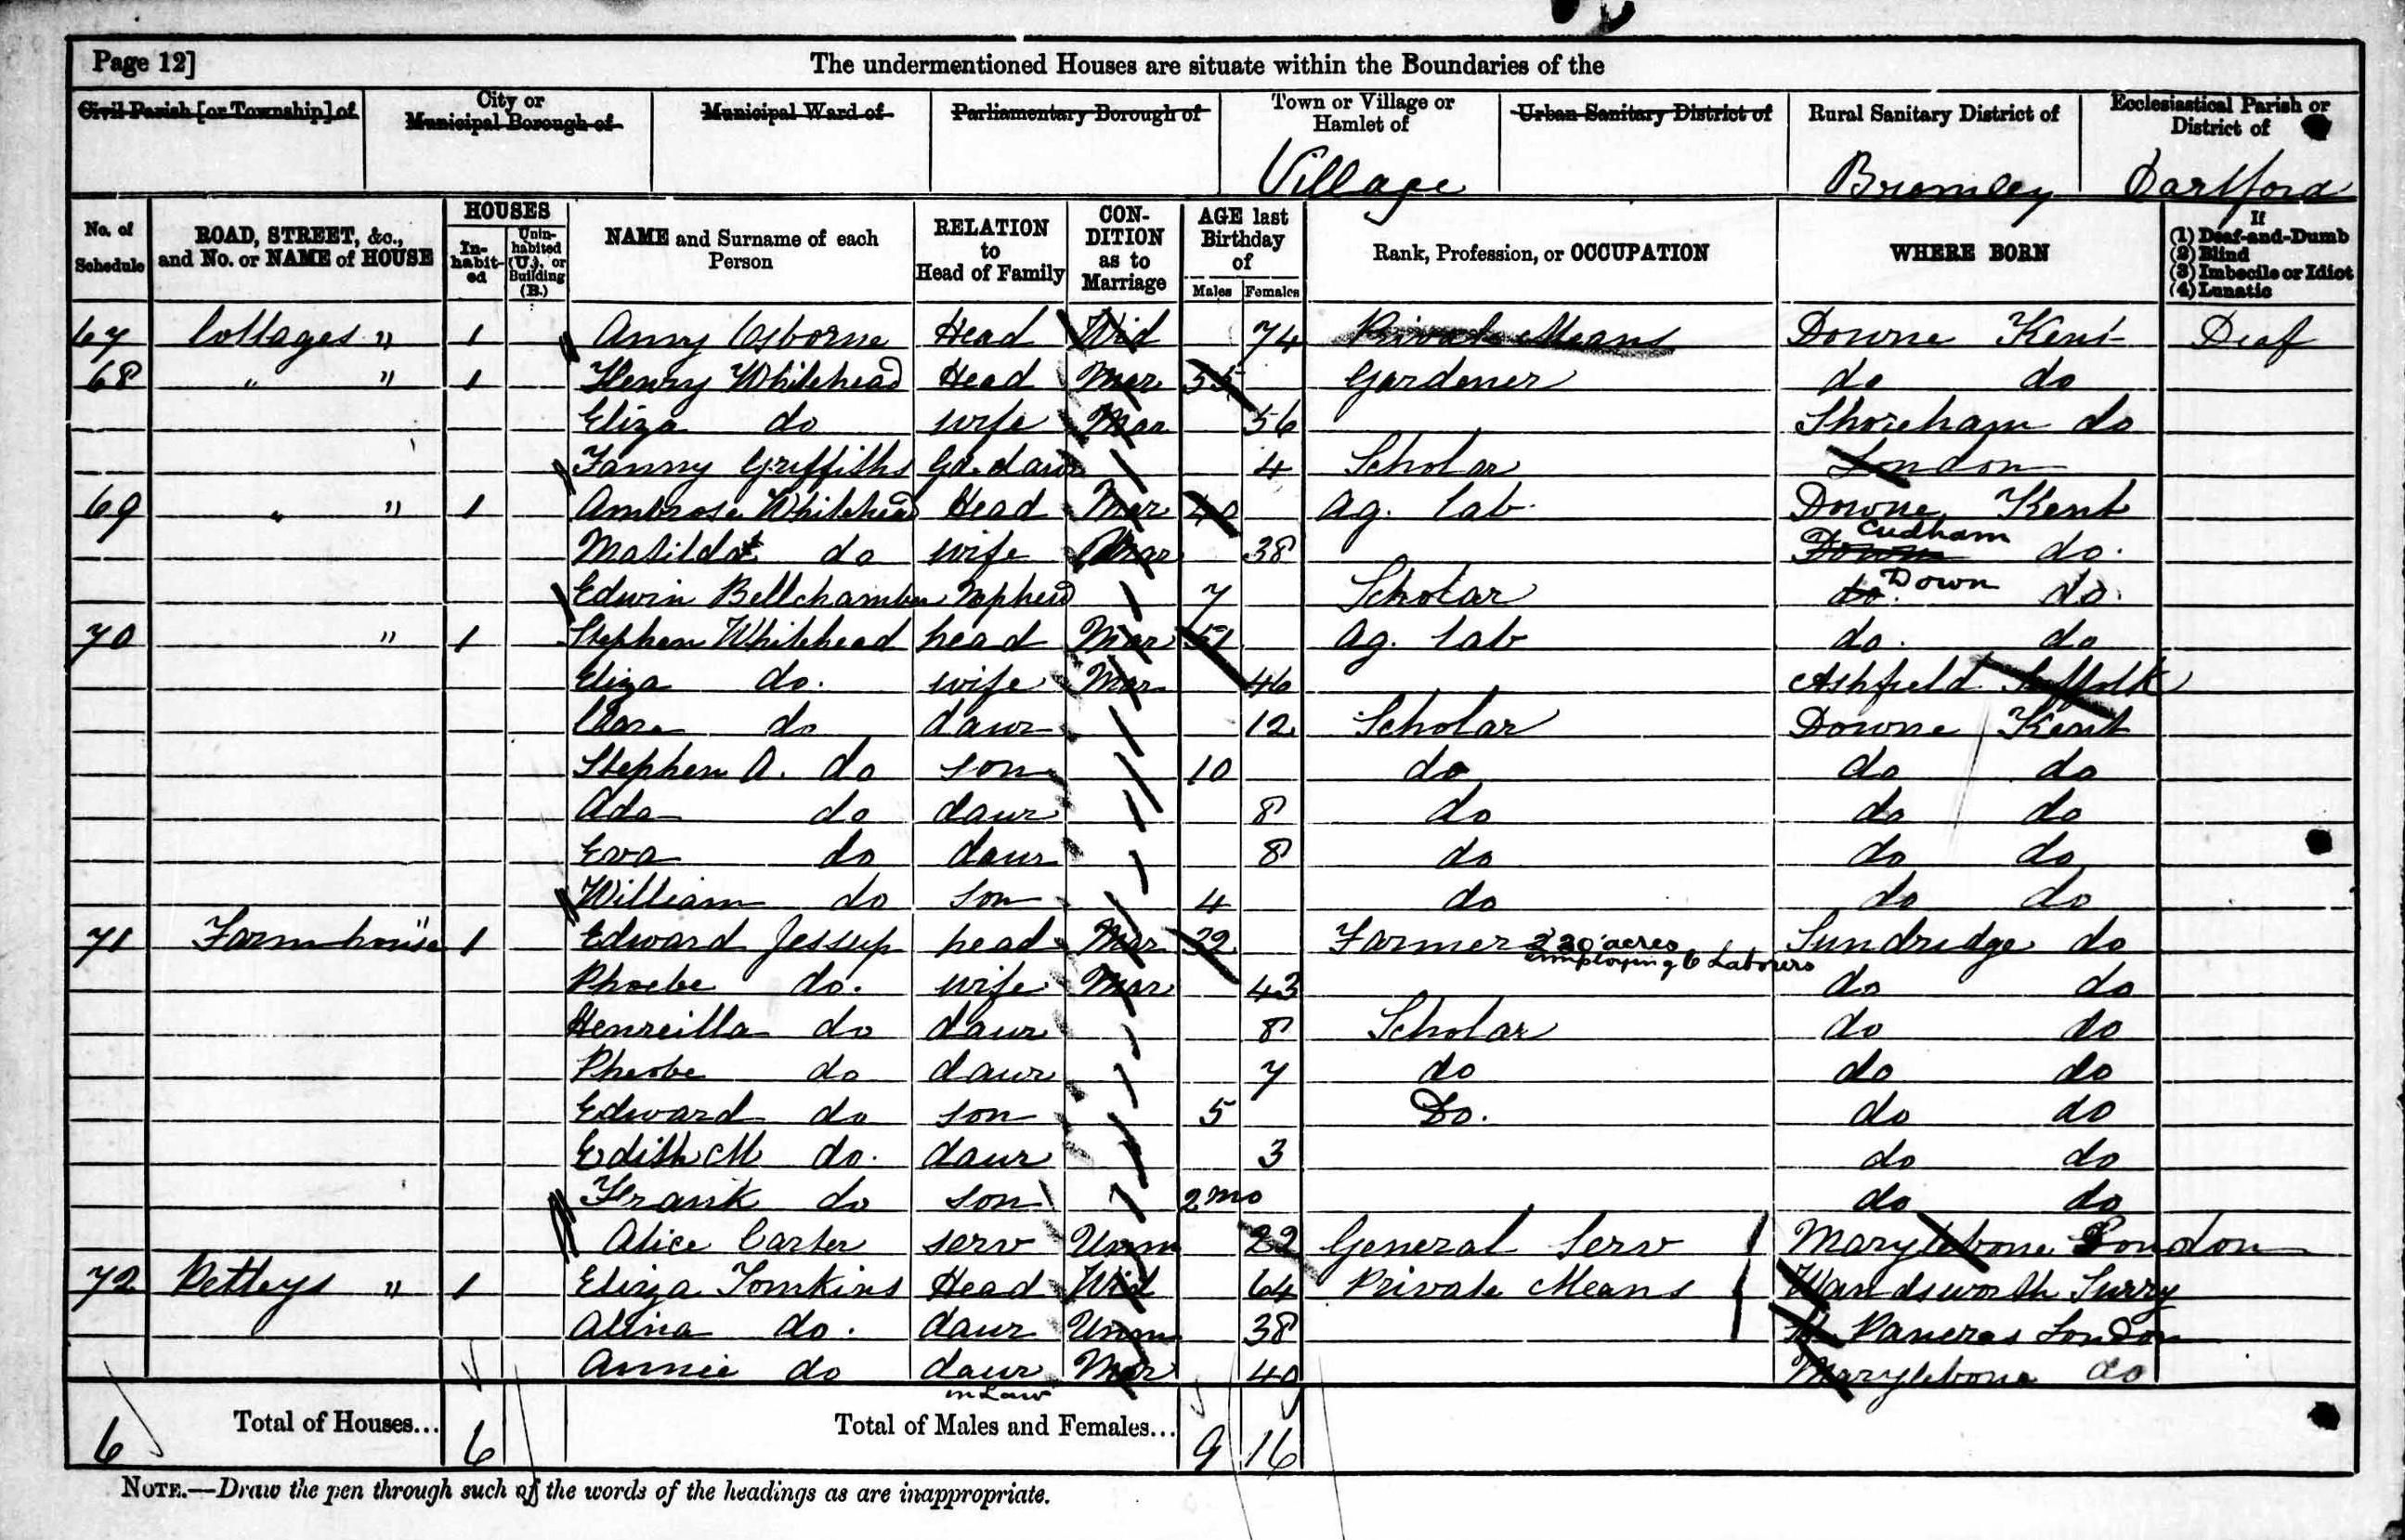 Page 12]
The undermentioned Houses are situate within the Boundaries of the
Civil Parish [or Township] of
City or Municipal Borough of
Municipal Ward of
Parliamentary Borough of
Town or Village or Hamlet of
Urban Sanitary District of
Rural Sanitary District of
Ecclesiastical Parish or District of
Village Bromley Dartford
No. of Schedule
ROAD, STREET, &c., and No. or NAME of HOUSE
HOUSES
In-habit-ed
Unin-habited (U.), or Building (B.)
NAME and Surname of each Person
RELATION to Head of Family
CON-DITION as to Marriage
AGE last Birthday of
Males Females
Rank, Profession, or OCCUPATION
WHERE BORN
If
(1) Deaf-and-Dumb
(2) Blind
(3) Imbecile or Idiot
(4) Lunatic
67 Cottages " 1 Anny Osborne Head Wid 74 Private Means Downe Kent Deaf
68 " " 1 Henry Whitehead Head Mar 55 Gardener do do
Eliza do wife Mar 56 Shoreham do
Fanny Griffiths Gd. daur 4 Scholar London
69 " " 1 Ambrose Whitehead Head Mar 40 Ag. Lab. Downe Kent
Matilda do wife Mar 38 Down Cudham do.
Edwin Bellchamber Nephew 7 Scholar do. Down do.
70 " 1 Stephen Whitehead head Mar 51 Ag. Lab do. do
Eliza do. wife Mar 46 Ashfield Suffolk
Clara do daur 12 Scholar Downe Kent
Stephen A. do son 10 do do do
Ada do daur 8 do do do
Eva do daur 8 do do do
William do son 4 do do do
71 Farm house " 1 Edward Jessup head Mar 32 Farmer 220 acres employing 6 Laborers Sundridge do
Phoebe do. wife Mar 43 do do
Henreilla do daur 8 Scholar do do
Pheobe do daur 7 do do do
Edward do son 5 Do. do do
Edith M do. daur 3 do do
Frank do son 2 mo do do
Alice Carter serv Unm 22 General Serv Marylebone London
72 Petleys " 1 Eliza Tomkins Head Wid 64 Private Means Wandsworth Surry
Alina do. daur Unm 38 St. Pancras London
Annie do daur in Law Mar 40 Marylebone do
6 Total of Houses... 6 Total of Males and Females... 9 16
NOTE.—Draw the pen through such of the words of the headings as are inappropriate.